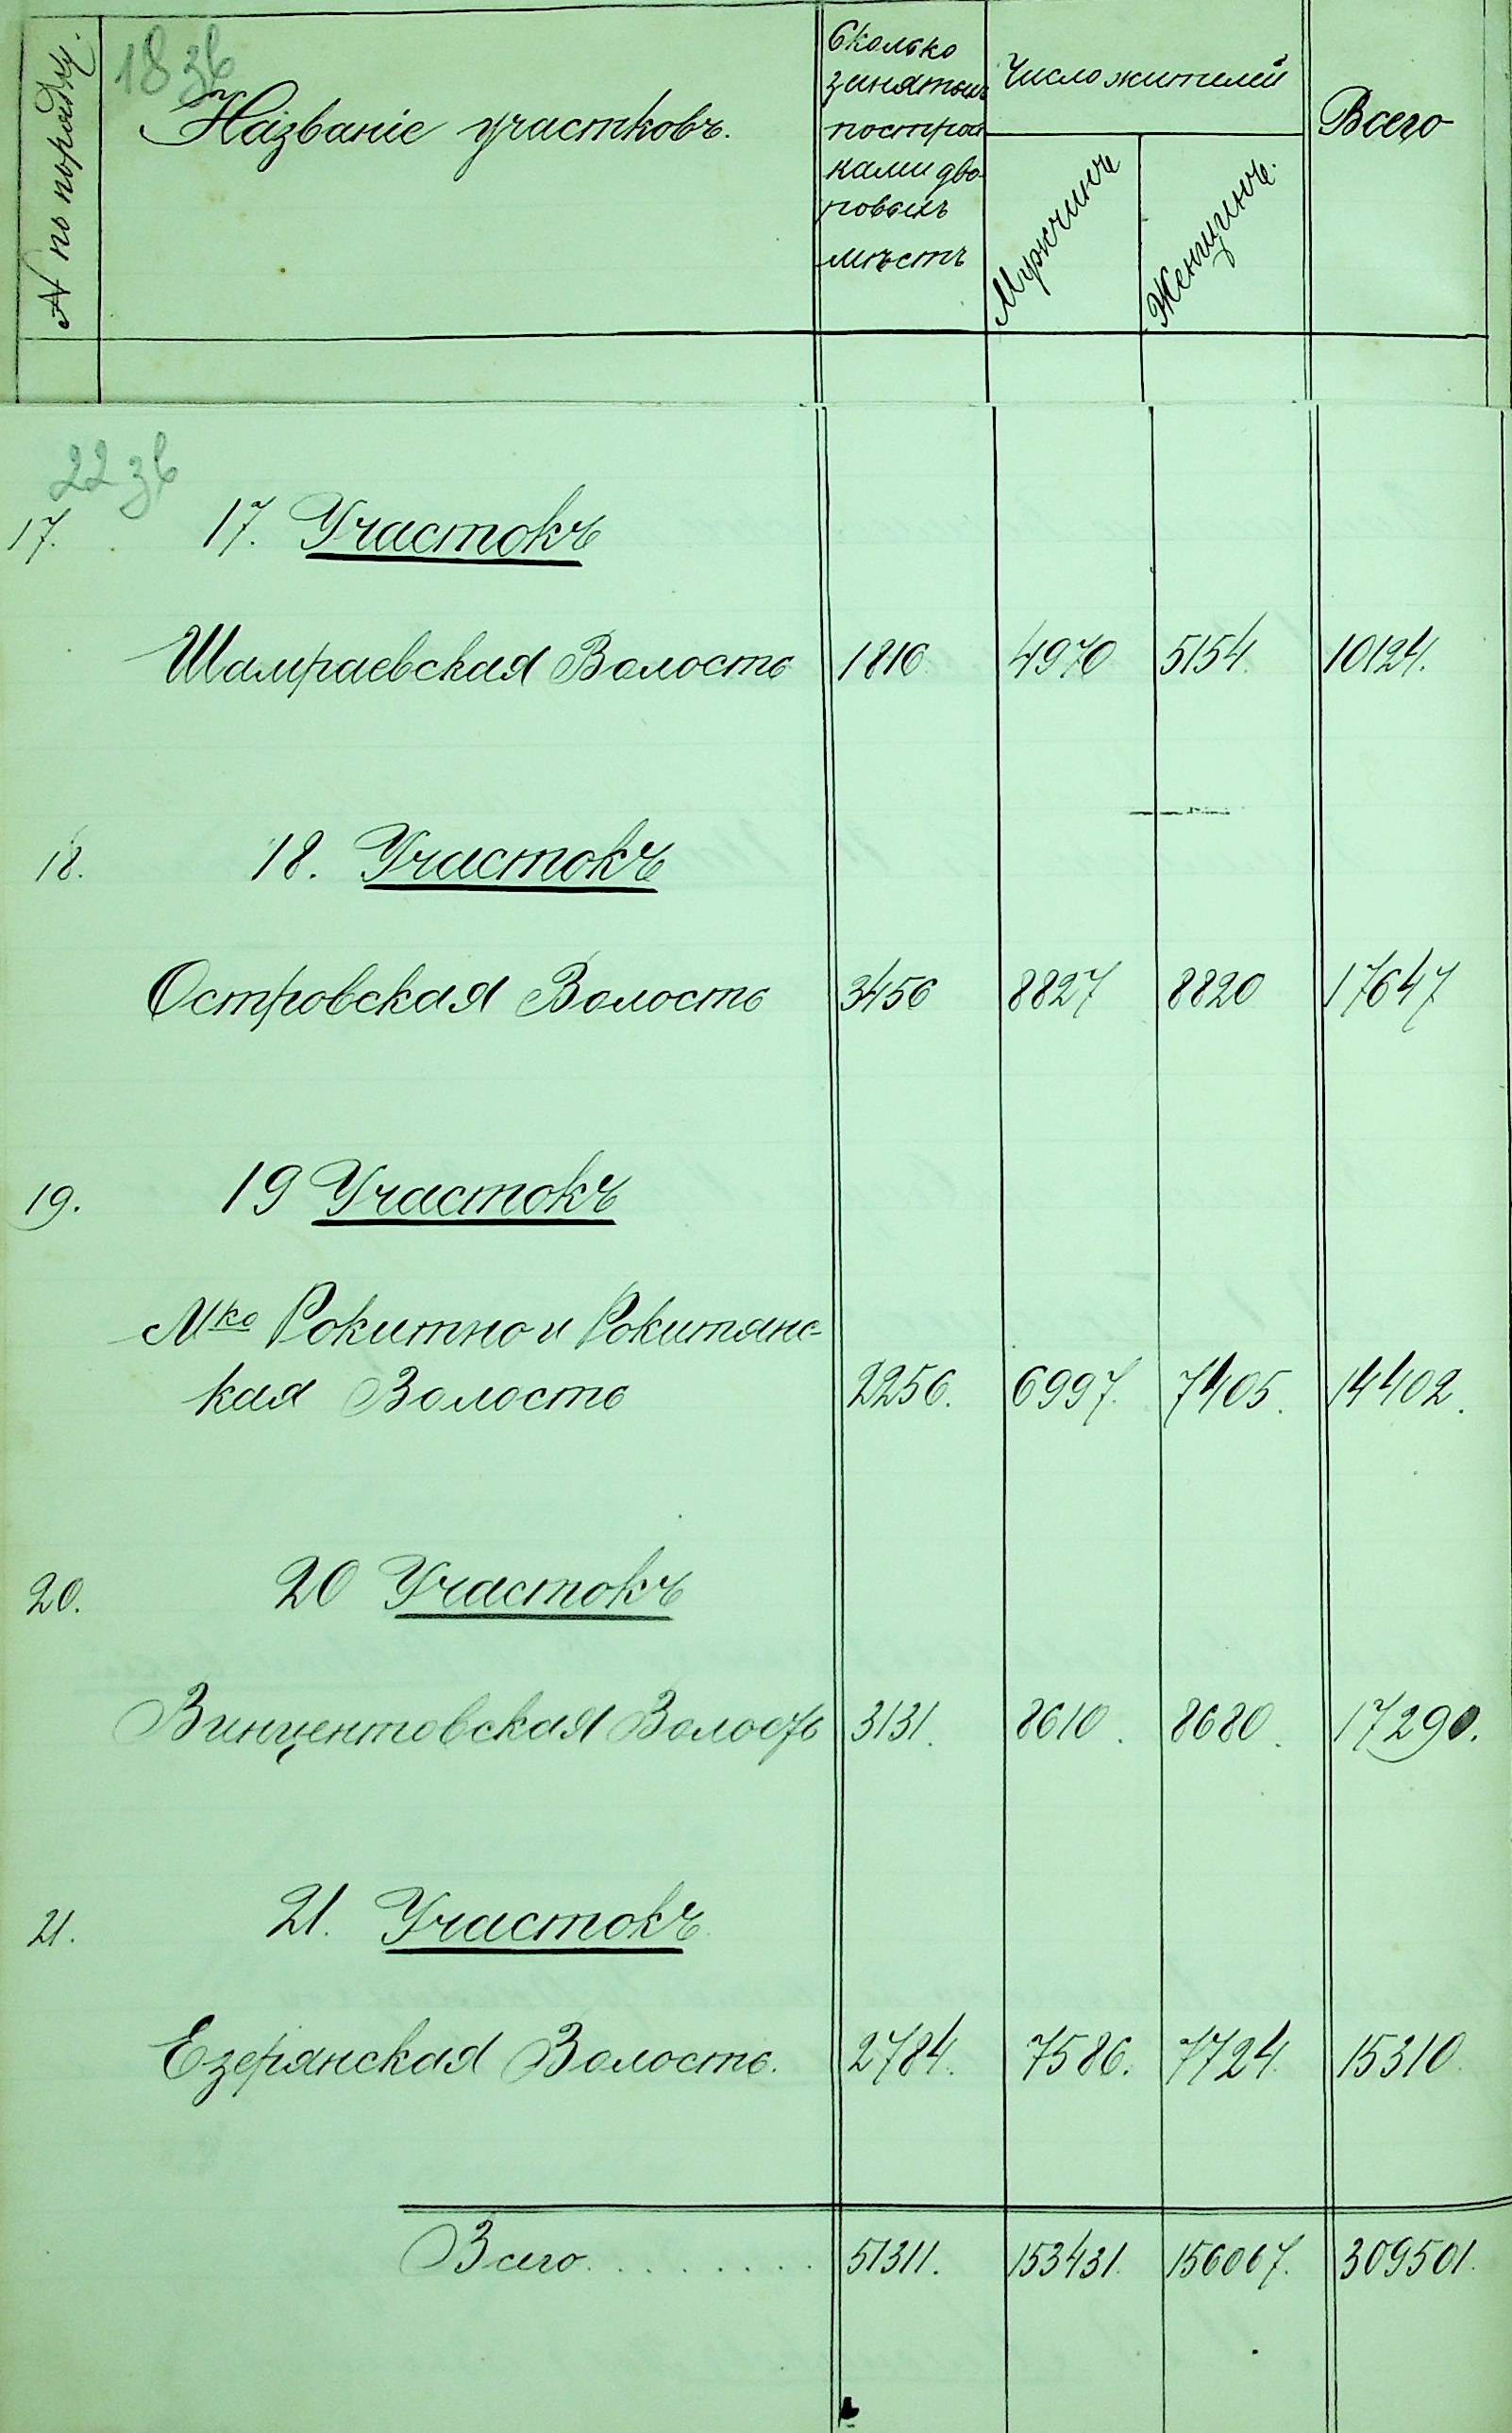 18 зв
№ по порядку.
Названіе участковъ.
Сколько
занятыхъ
построй
ками дво-
ровыхъ
мѣстъ
Число жителей
Мужчинъ
Женщинъ.
Всего
22 зв
17. 17. Участокъ
Шамраевская Волость 1816 4970 5154. 10124.
18. 18. Участокъ
Островская Волость 3456 8827 8820 17647
19. 19 Участокъ
Мко Рокитно и Рокитянс-
кая Волость 2256. 6997. 7405. 14402.
20. 20 Участокъ
Винцентовская Волость 3131. 8610. 8680. 17290.
21. 21. Участокъ
Езерянская Волость. 2784. 7586. 7724. 15310.
Всего......... 51311. 153431. 156067. 309501.